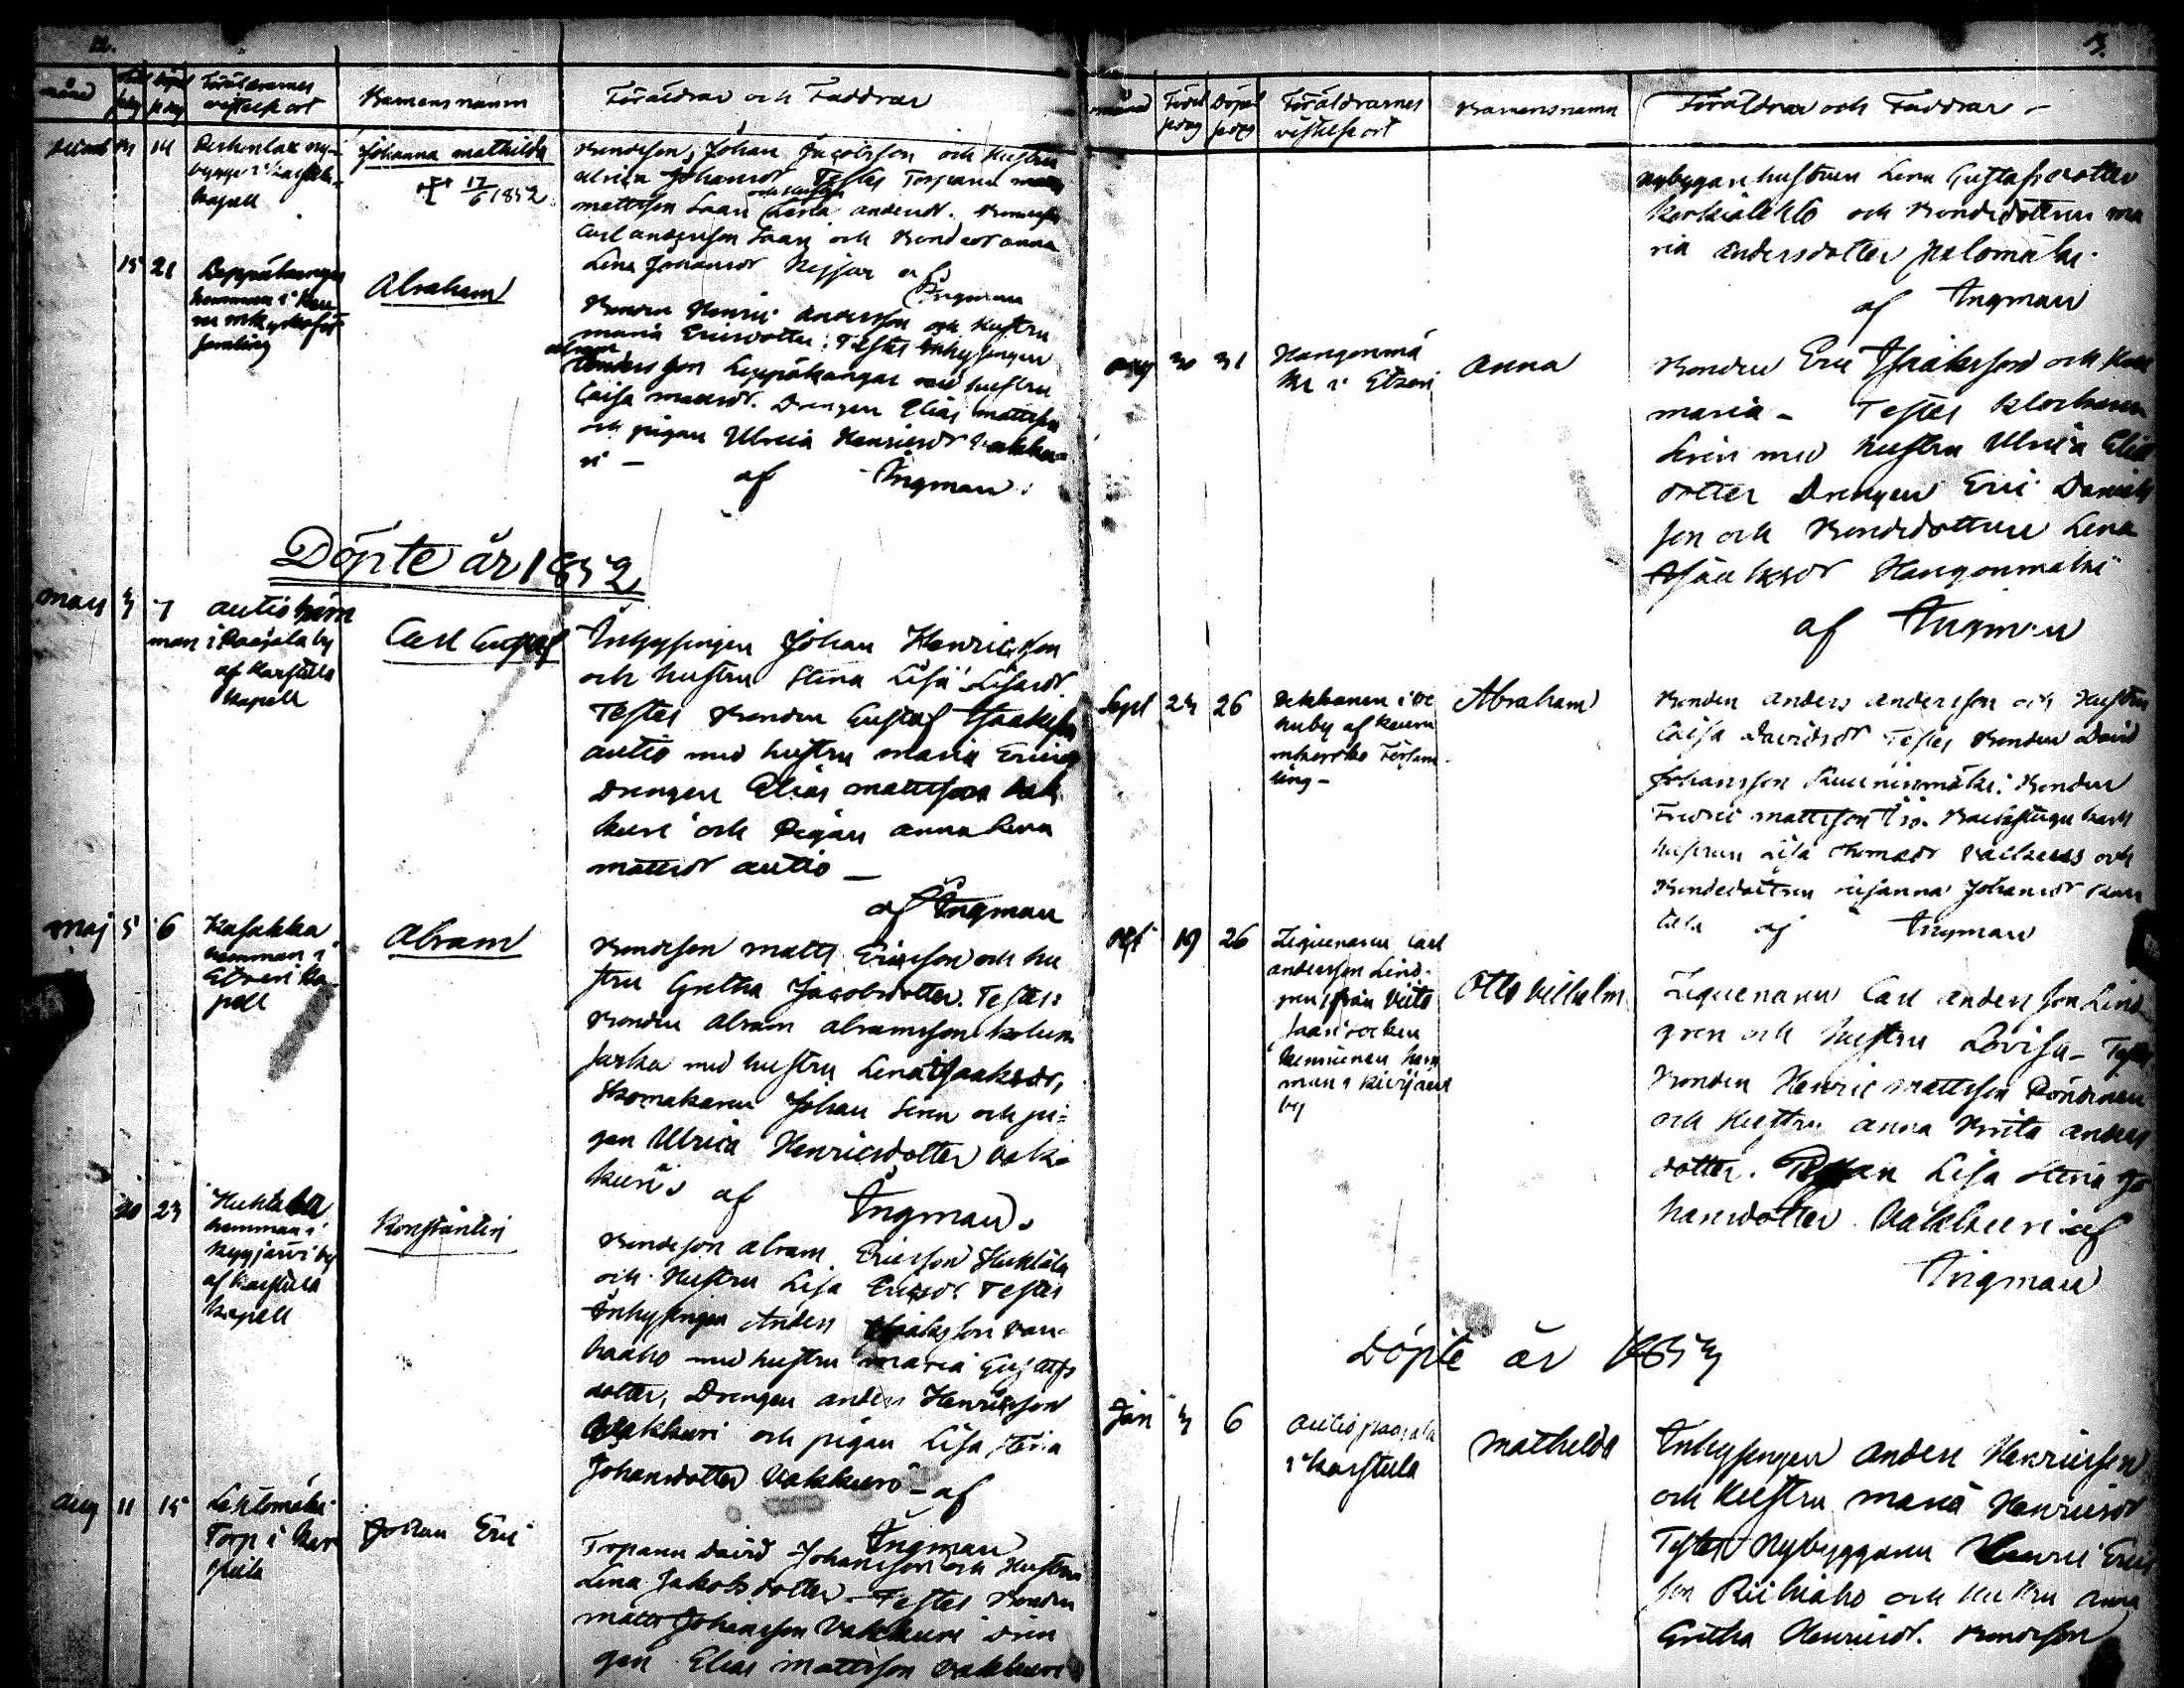 12.
månad
Född dag
Döpelsedag
Föräldrarnes
vistelseort
Barnens namn
Föräldrar och Faddrar
14
nybygge i
kapell
Johanna Mathilda
17/6 1852
Bondeson, Johan Jacobsson och hustru
Ulrica Johansdr Testes Torparn Matts
Mattsson Saari och hustru Lisa Andersdr. Bondeson
Carl Andersson Saari och Bonddr Anna
Lena Johansdr af
Ingman
15 21
Leppäkangas
hemman i Keu
ru moderför
samling
Abraham
Bonden Henric Andersson och hustru
Maria Ericsdotter. Testes Inhysingen
Abram
Andersson Leppäkangas med hustru
Caisa Mattsdr. Drengen Elias Mattsson
och pigan Ulrica Henricsdr Vakku-
ri –
af Ingman
Döpte år 1852
Mars 3 7
Autio hem
man i Paajala by
af Karstula
kapell
Carl Gustaf
Inhysingen Johan Henricsson
och hustru Stina Lisa
Testes Bonden Gustaf Isaksson
Autio med hustru Maria Ericsdr
Drengen Elias Mattsson Vak
kuri och Pigan Anna Lena
Mattsdr Autio –
af Ingman
Maj 5 6
Kasakka
hemman i
Etseri ka
pell
Abram
Bondeson Matts Ericsson och hu
stru Gretha Jacobsdotter. Testes:
Bonden Abram Abramsson
med hustru Lena Isaaksdr,
Skomakaren Johan Sirén och pi-
gan Ulrica Henricsdotter Vak-
kuri af Ingman.
20 23
Huktala
hemman i
Kyyjärvi by
af Karstula
kapell
Konstantin
Bondeson Abram Ericsson Huktala
och Hustru Lisa Ericsdr. Testes
Inhysingen Anders Isaksson Van-
haaho med hustru Maria Gustafs
dotter, Drengen Anders Henricsson
Vakkuri och pigan Lisa Stina
Johansdotter Vakkuri – af
Ingman
Aug 11 15
Lehtomäki
Torp i Kar
stula
Johan Eric
Torparn David Johansson och Hustru
Lena Jakobsdotter – Testes Bonden
Matts Johansson Vakkuri dren
gen Elias Mattsson Vakkuri
13.
månad
Född dag
Döpelsedag
Föräldrarnes
vistelseort
Barnens namn
Föräldrar och Faddrar –
nybyggarehustrun Lena Gustafsdotter
Korkialehto och Bondedottren Ma
ria Andersdotter Palomäki
af Ingman
Aug 30 31
Hangonmä
ki i Etseri
Anna
Bonden Eric Isaaksson och Hust
Maria – Testes Klockaren
Sirén med hustru Ulrica Elias
dotter Drengen Eric Daniels
son och Bondedottren Lena
Isaaksdr Hangonmäki
af Ingman
Sept 23 26
by af Keuru
moderkyrko Försam
ling –
Abraham
Bonden Anders Andersson och Hustru
Caisa Davidsdr Testes Bonden David
Johansson Bonden
Fredric Mattsson
hustrun Lisa Thomasdr och
Bondedottren Susanna Johansdr
af Ingman
Oct 19 26
Ziguenaren Carl
Andersson Lind-
gren från Viita
saari socken
hem
man i Kivijärvi
by
Otto Vilhelm
Ziguenaren Carl Andersson Lind
gren och hustru Lovisa – Testes
Bonden Henric Mattsson Pöntinen
och Hustru Anna Brita Anders
dotter. Pigan Lisa Stina Jo
hansdotter Vakkuri af
Ingman
Döpte år 1853
Jan 3 6
Autio Paajala
i Karstula
Mathilda
Inhysingen Anders Henricsson
och Hustru Maria Henricsdr
Testes Nybyggaren Henric Erics
son Riihiaho och Hustru Anna
Gretha Henricsdr. Bondeson